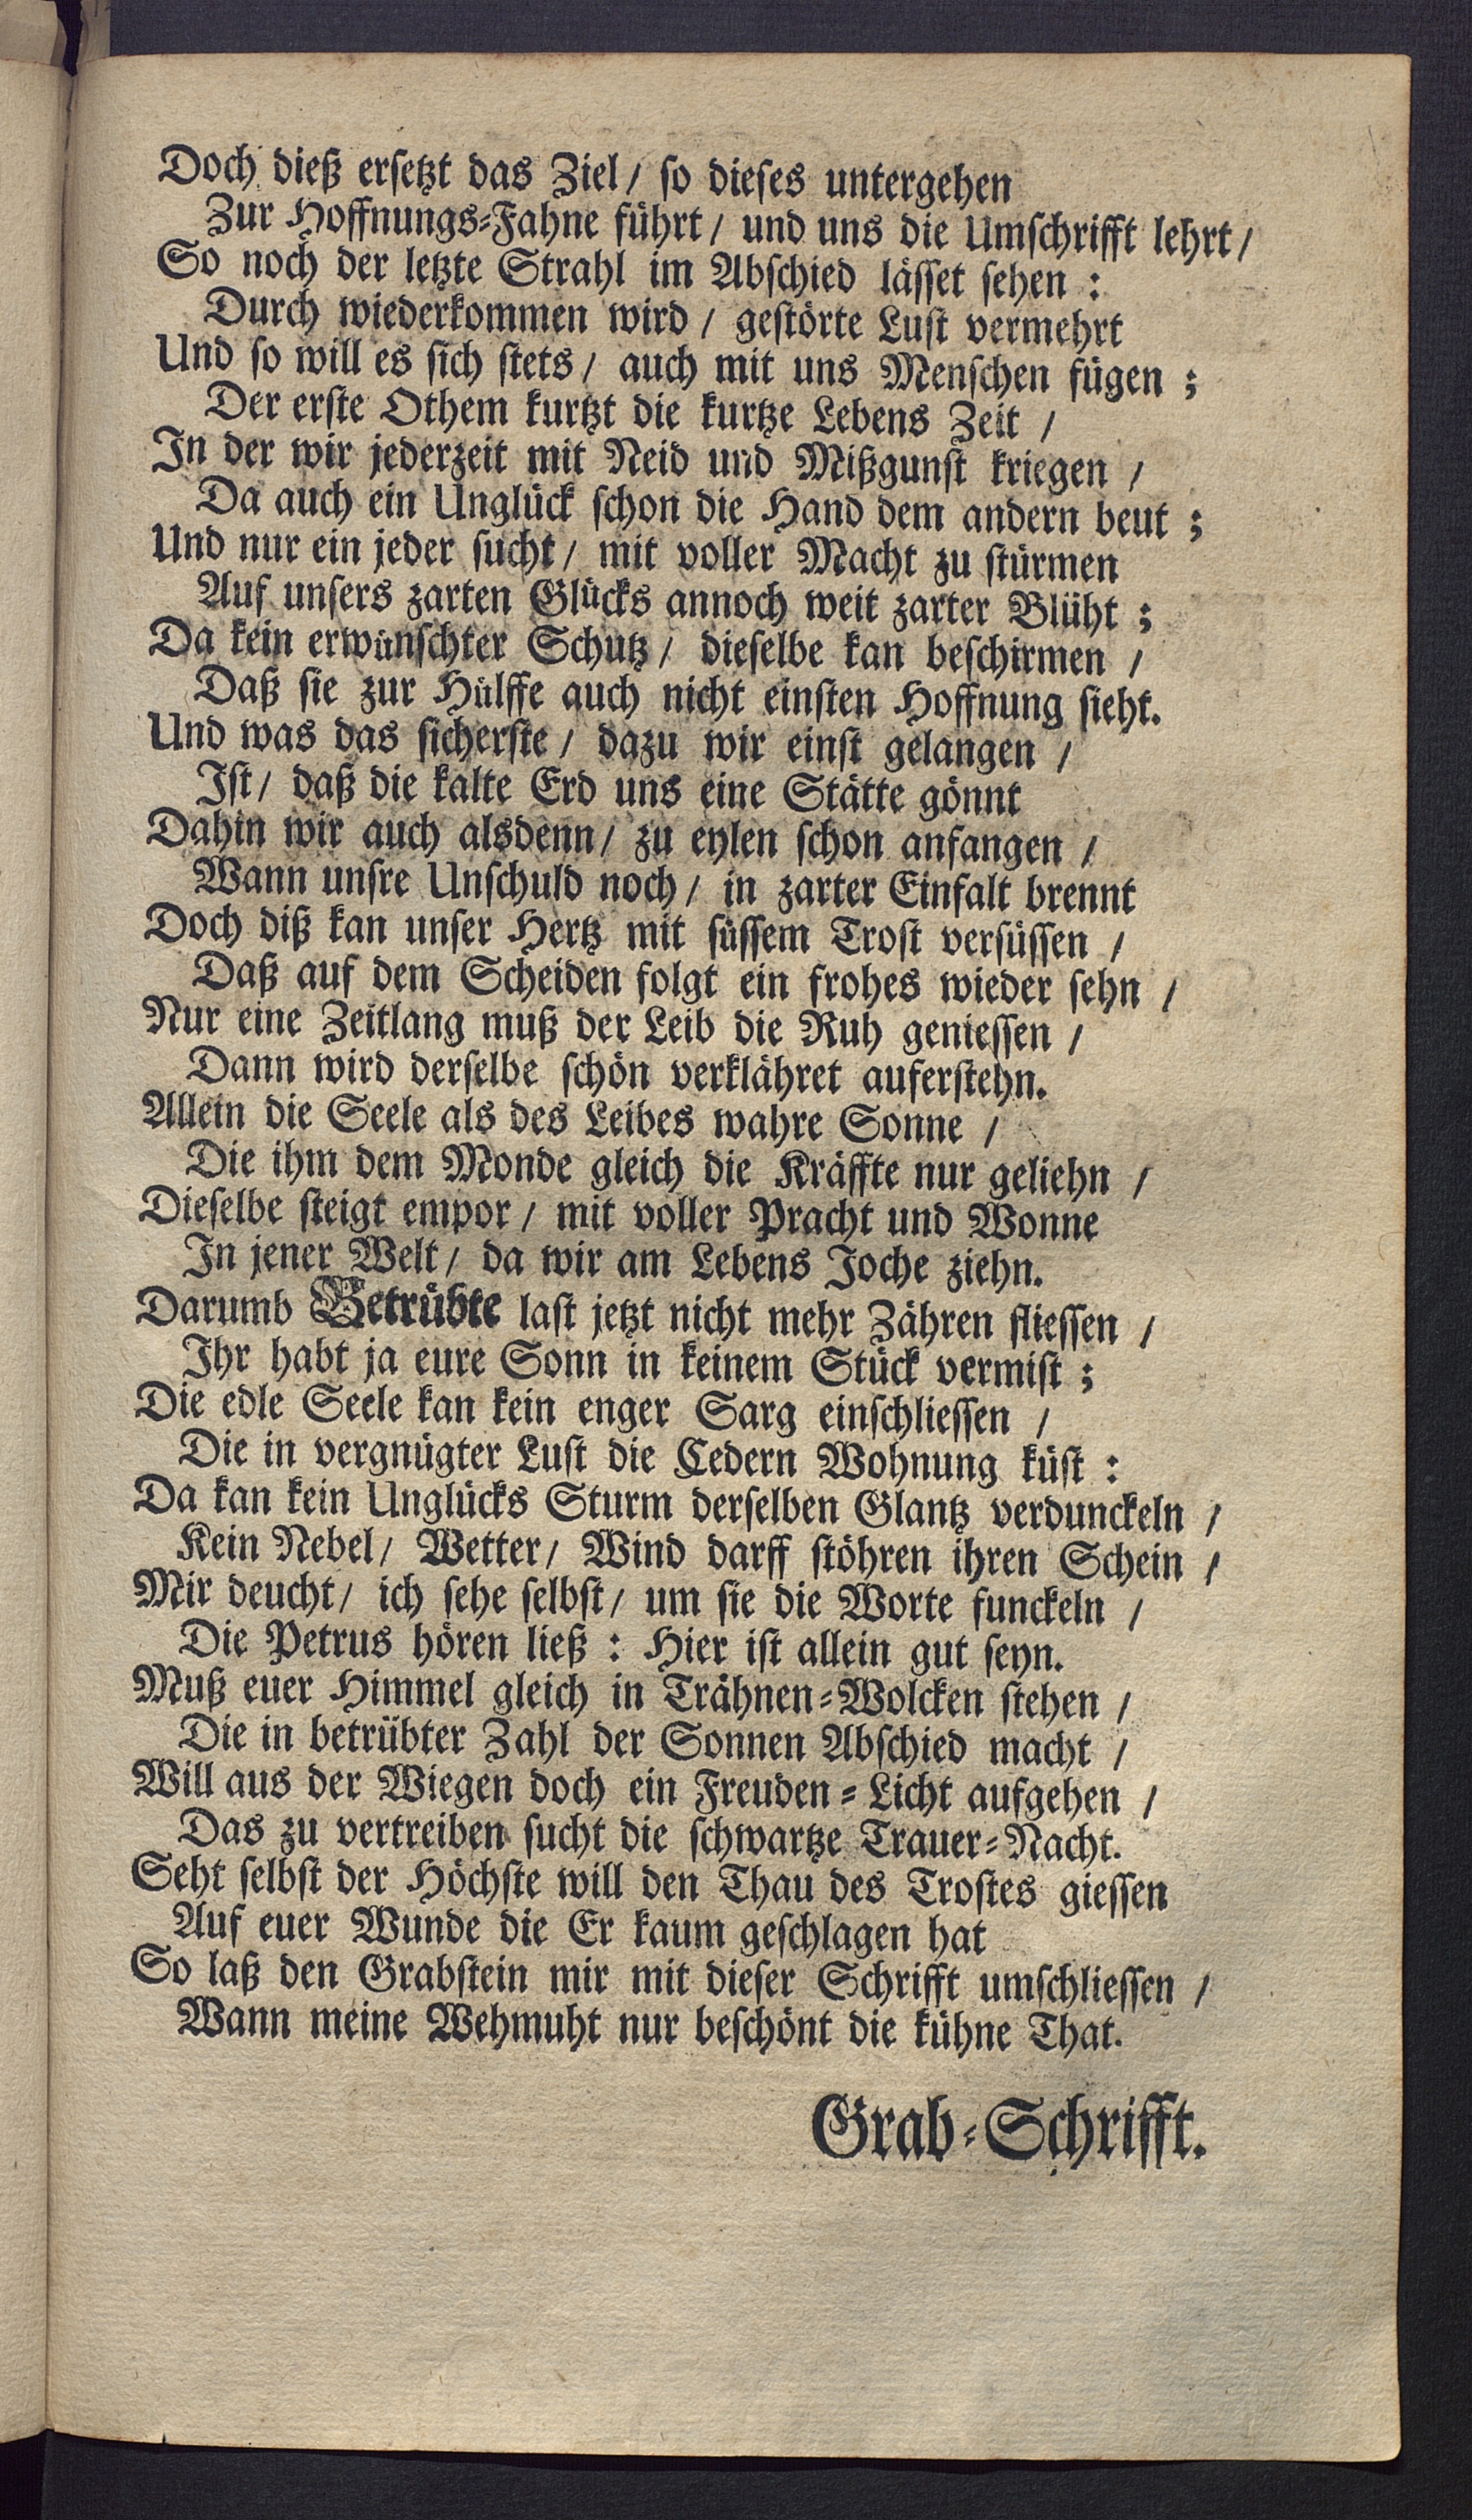 Doch dieß erſetzt das Ziel / ſo dieſes untergehen
Zur Hoffnungs-Fahne führt / und uns die Umſchrifft lehrt /
So noch der letzte Strahl im Abſchied läſſet ſehen :
Durch wiederkommen wird / geſtörte Luſt vermehrt
Und ſo will es ſich ſtets / auch mit uns Menſchen fügen ;
Der erſte Othem kurtzt die kurtze Lebens Zeit /
In der wir jederzeit mit Neid und Mißgunſt kriegen /
Da auch ein Unglück ſchon die Hand dem andern beut ;
Und nur ein jeder ſucht / mit voller Macht zu ſtürmen
Auf unſers zarten Glücks annoch weit zarter Blüht ;
Da kein erwünſchter Schutz / dieſelbe kan beſchirmen /
Daß ſie zur Hülffe auch nicht einſten Hoffnung ſieht.
Und was das ſicherſte / dazu wir einſt gelangen /
Iſt / daß die kalte Erd uns eine Stätte gönnt
Dahin wir auch alsdenn / zu eylen ſchon anfangen /
Wann unſre Unſchuld noch / in zarter Einfalt brennt
Doch diß kan unſer Hertz mit ſüſſem Troſt verſüſſen /
Daß auf dem Scheiden folgt ein frohes wieder ſehn /
Nur eine Zeitlang muß der Leib die Ruh genieſſen /
Dann wird derſelbe ſchön verklähret auferſtehn.
Allein die Seele als des Leibes wahre Sonne /
Die ihm dem Monde gleich die Kräffte nur geliehn /
Dieſelbe ſteigt empor / mit voller Pracht und Wonne
In jener Welt / da wir am Lebens Joche ziehn.
Darumb Betrübte laſt jetzt nicht mehr Zähren flieſſen /
Ihr habt ja eure Sonn in keinem Stück vermiſt ;
Die edle Seele kan kein enger Sarg einſchlieſſen /
Die in vergnügter Luſt die Cedern Wohnung küſt :
Da kan kein Unglücks Sturm derſelben Glantz verdunckeln /
Kein Nebel / Wetter / Wind darff ſtöhren ihren Schein /
Mir deucht / ich ſehe ſelbſt / um ſie die Worte funckeln /
Die Petrus hören ließ : Hier iſt allein gut ſeyn.
Muß euer Himmel gleich in Trähnen-Wolcken ſtehen /
Die in betrübter Zahl der Sonnen Abſchied macht /
Will aus der Wiegen doch ein Freuden-Licht aufgehen /
Das zu vertreiben ſucht die ſchwartze Trauer-Nacht.
Seht ſelbſt der Höchſte will den Thau des Troſtes gieſſen
Auf euer Wunde die Er kaum geſchlagen hat
So laß den Grabſtein mir mit dieſer Schrifft umſchlieſſen /
Wann meine Wehmuht nur beſchönt die kühne That.
Grab-Schrifft.